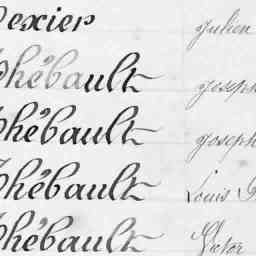 Texier Julien
Thébault Joseph
Thébault Joseph
Thébault Louis
Thébault Victor